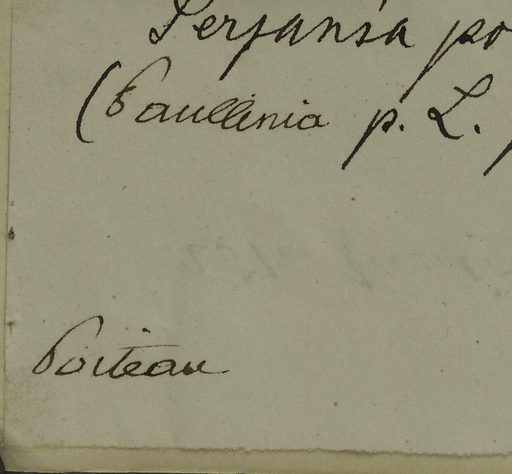 Serjania po
(Paullinia p. L.
Poiteau